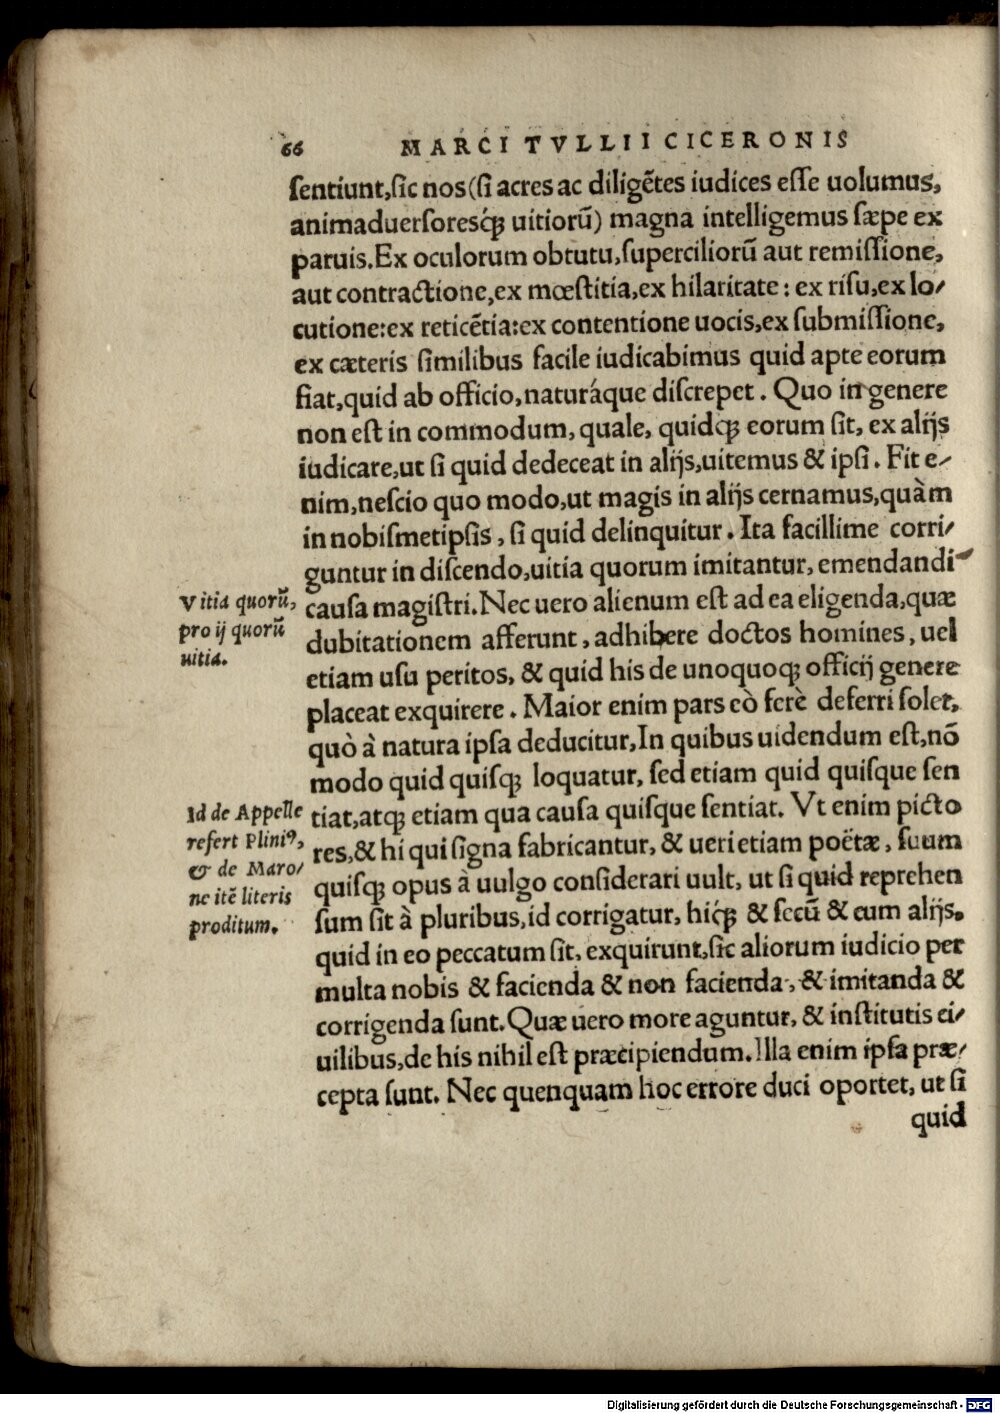 66 MARCI TVLLII CICERONIS
ſentiunt,ſic nos(ſi acres ac diligẽtes iudices eſſe uolumus,
animaduerſoresq́ꝫ uitiorũ) magna intelligemus ſæpe ex
paruis.Ex oculorum obtutu,ſuperciliorũ aut remiſſione,
aut contractione,ex mœſtitia,ex hilaritate: ex riſu,ex lo/
cutione:ex reticẽtia:ex contentione uocis,ex ſubmiſſione,
ex cæteris ſimilibus facile iudicabimus quid apte eorum
fiat,quid ab officio,naturáque diſcrepet. Quo in genere
non eſt in commodum, quale, quidqꝫ eorum ſit, ex alijs
iudicare,ut ſi quid dedeceat in alijs,uitemus & ipſi. Fit e/
nim,neſcio quo modo,ut magis in alijs cernamus,quàm
in nobiſmetipſis, ſi quid delinquitur. Ita facillime corri/
guntur in diſcendo,uitia quorum imitantur, emendandi
cauſa magiſtri.Nec uero alienum eſt ad ea eligenda,quæ
dubitationem afferunt, adhibere doctos homines, uel
etiam uſu peritos, & quid his de unoquoqꝫ officij genere
placeat exquirere. Maior enim pars eò ferè deferri ſolet,
quò à natura ipſa deducitur,In quibus uidendum eſt,nõ
modo quid quiſqꝫ loquatur, ſed etiam quid quiſque ſen
tiat,atqꝫ etiam qua cauſa quiſque ſentiat. Vt enim picto
res,& hi qui ſigna fabricantur, & ueri etiam poëtæ, ſuum
quiſqꝫ opus à uulgo conſiderari uult, ut ſi quid reprehen
ſum ſit à pluribus,id corrigatur, hiq́ꝫ & ſecũ & cum alijs.
quid in eo peccatum ſit, exquirunt,ſic aliorum iudicio per
multa nobis & facienda & non facienda, & imitanda &
corrigenda ſunt.Quæ uero more aguntur, & inſtitutis ci/
uilibus,de his nihil eſt præcipiendum.Illa enim ipſa præ/
cepta ſunt. Nec quenquam hoc errore duci oportet, ut ſi
quid
Vitia quorũ,
pro ij quorũ
uitia.
Id de Appelle
refert Pliniꝰ,
& de Maro/
ne itẽ literis
proditum.
Digitalisierung gefördert durch die Deutsche Forschungsgemeinschaft - DFG